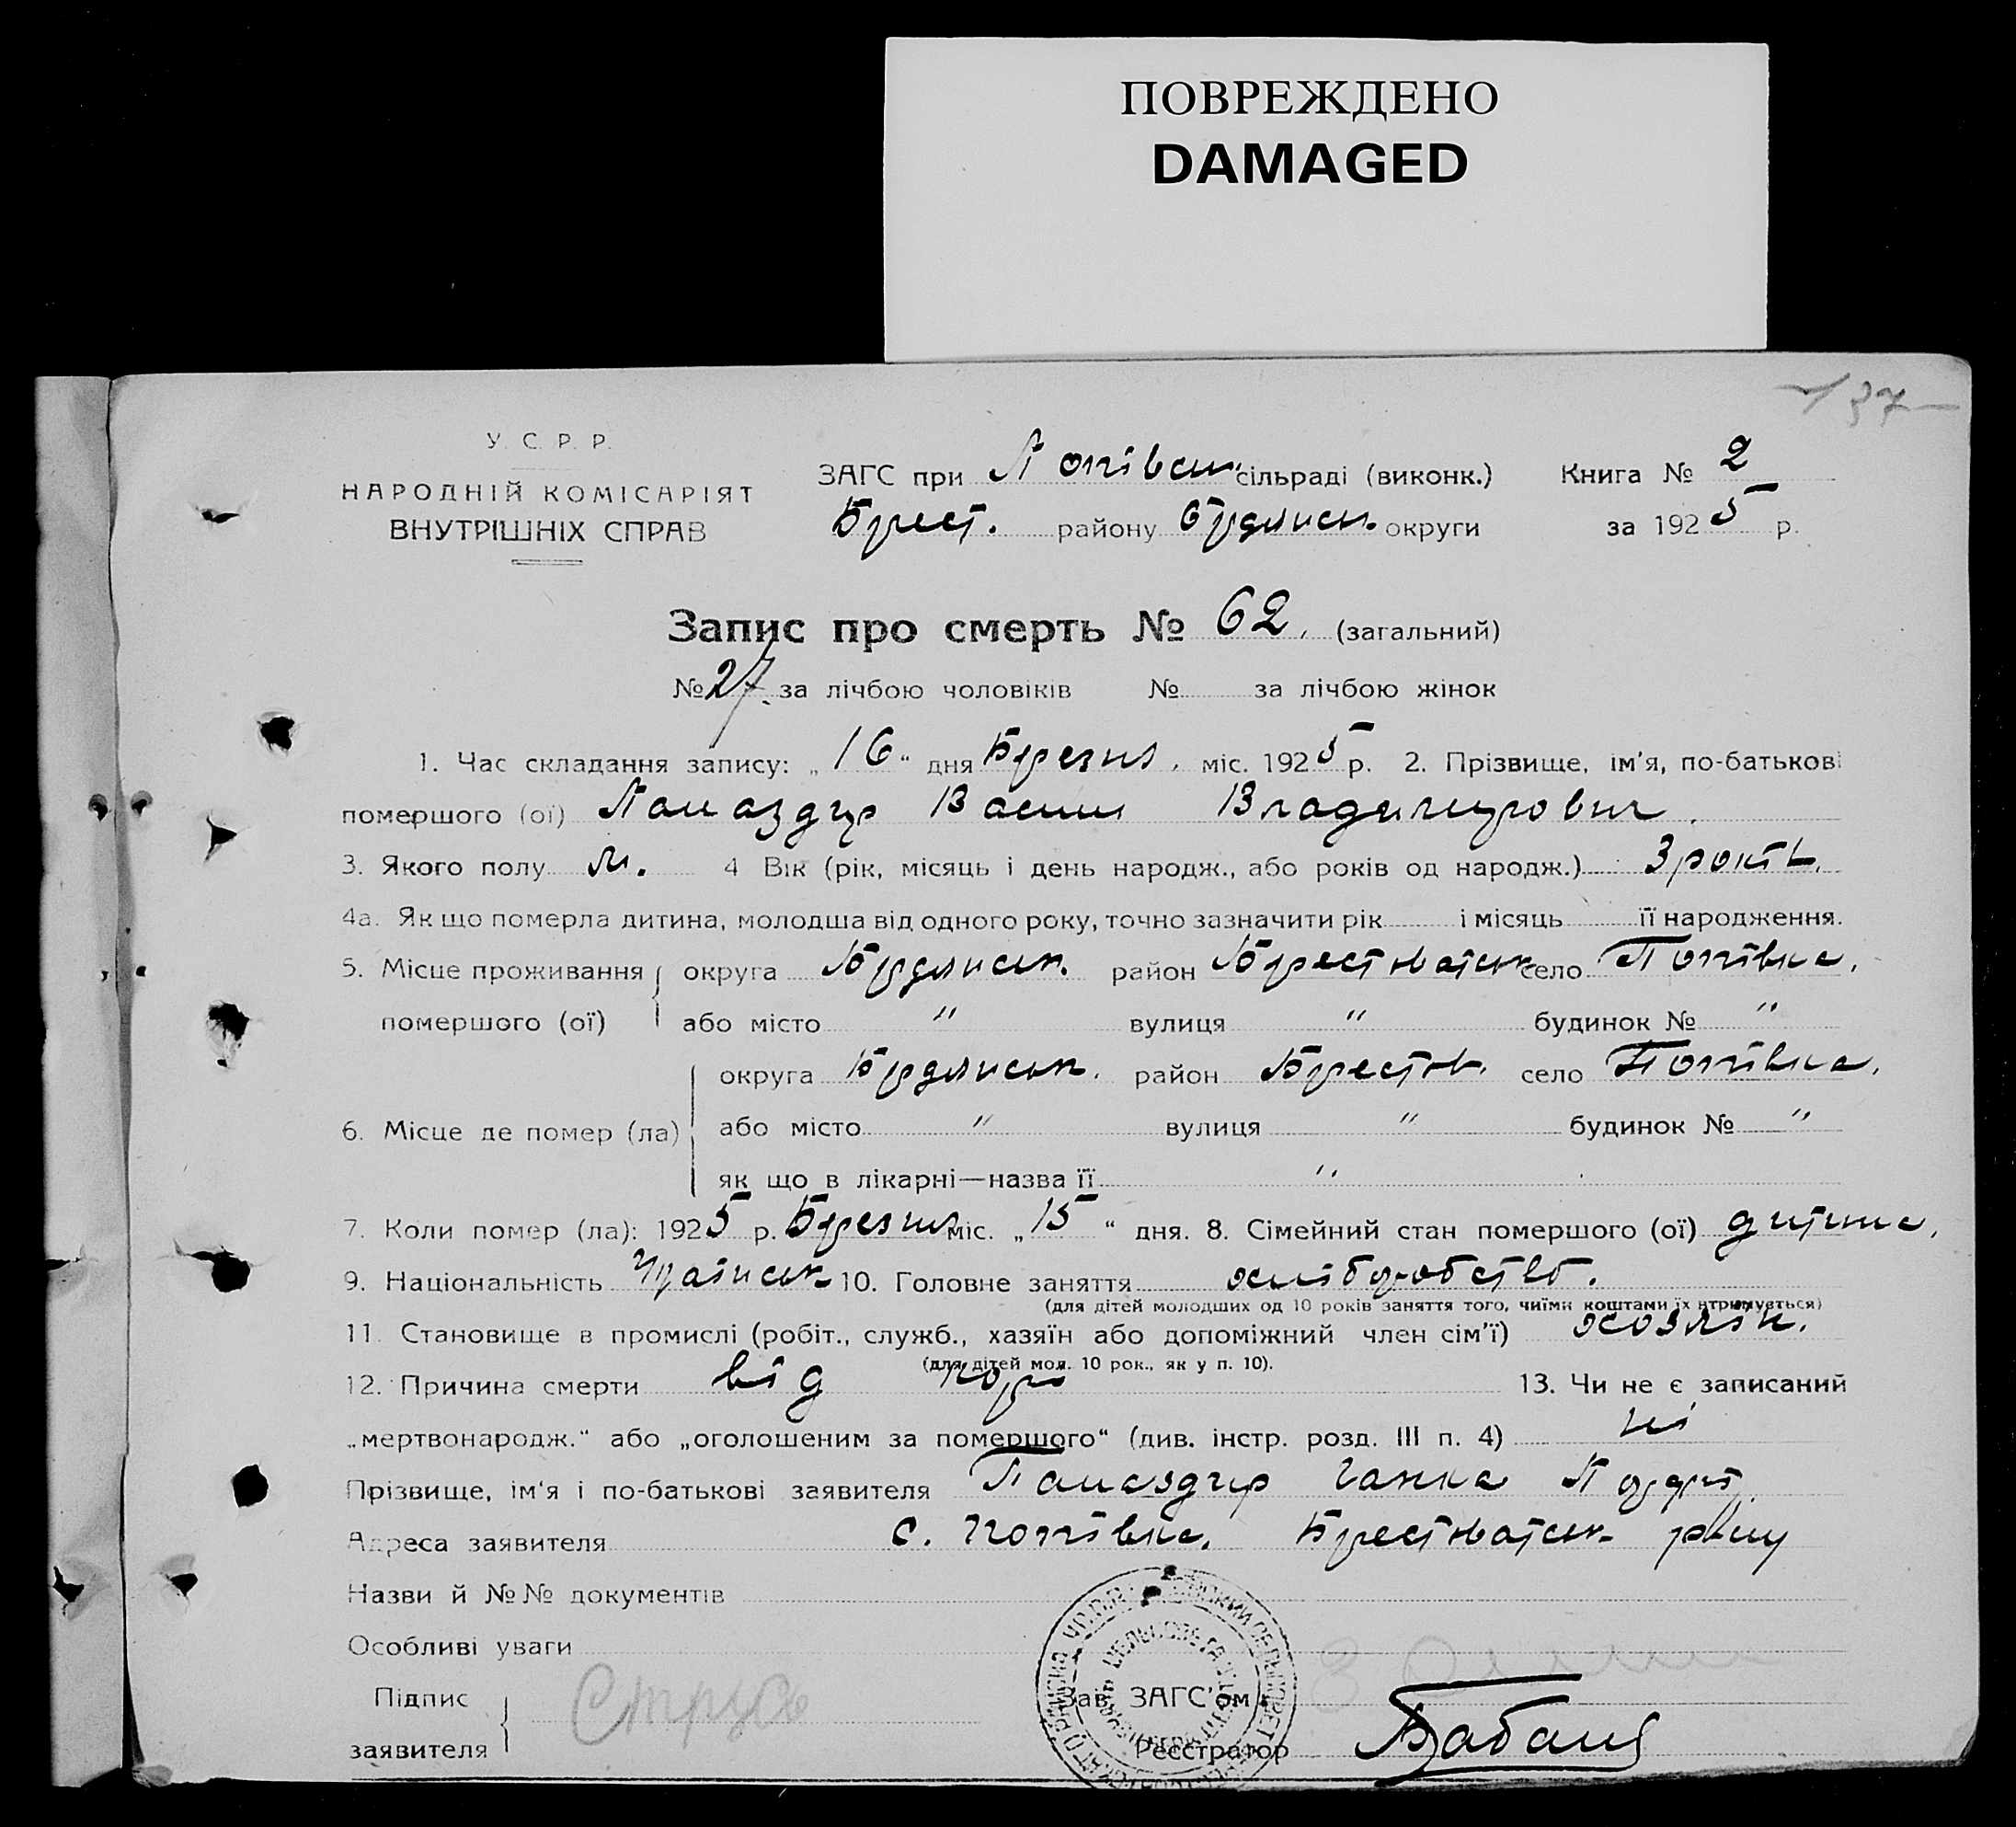 ПОВРЕЖДЕНО
DAMAGED
137
У. С. Р. Р.
НАРОДНІЙ КОМІСАРІЯТ
ВНУТРІШНІХ СПРАВ
ЗАГС при Попівськ сільраді (виконк.) Книга № 2
Брест. району Брдянськ. округи за 1925 р.
Запис про смерть № 62. (загальний)
№ 27. за лічбою чоловіків № за лічбою жінок
1. Час складання запису: „16“ дня Березня, міс. 1925 р. 2. Прізвище, ім'я, по-батькові
помершого (ої) Папаздир Васил Владимирович.
3. Якого полу м. 4 Вік (рік, місяць і день народж., або років од народж.) 3 років.
4а. Як що померла дитина, молодша від одного року, точно зазначити рік і місяць її народження.
5. Місце проживання округа Брдянськ. район Брестоватськ село Попівка.
помершого (ої) або місто " вулиця " будинок № "
округа Брдянськ. район Брестов. село Попівка.
6. Місце де помер (ла) або місто " вулиця " будинок № "
як що в лікарні—назва її "
7. Коли помер (ла): 1925 р. Березня міс. „15“ дня. 8. Сімейний стан помершого (ої) дитина.
9. Національність 10. Головне заняття хліборобство.
(для дітей молодших од 10 років заняття того, чиїми коштами їх втримується)
11. Становище в промислі (робіт., служб., хазяїн або допоміжний член сім'ї) хозяїн.
(для дітей мол. 10 рок., як у п. 10).
12. Причина смерти від кору 13. Чи не є записаний
„мертвонародж.“ або „оголошеним за помершого“ (див. інстр. розд. III п. 4) ні
Прізвище, ім'я і по-батькові заявителя Папаздир Ганна
Адреса заявителя с. Попівка. Брестоватськ рвну
Назви й №№ документів
Особливі уваги
Підпис заявителя Струсь
Зав. ЗАГС'ом
Реєстратор Бабани